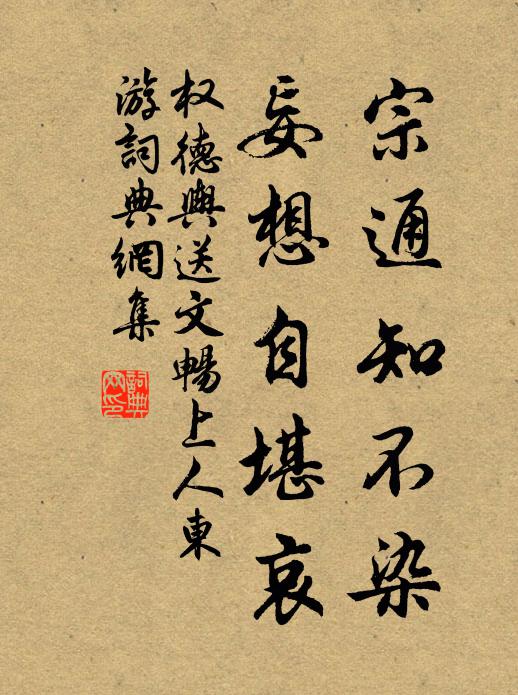 宗通知不染
妄想自堪哀
权德輿送文暢上人東
游詞典網集
詞典
网印